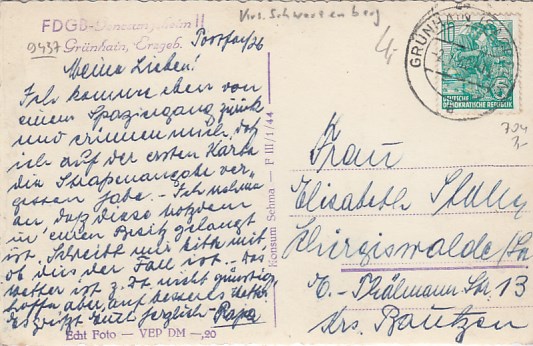 FDGB-Genesungsheim II
Krs. Schwarzenberg
9437 Grünhain, Erzgeb. Postfach 26
4,-
GRÜNHAIN (ERZGEB)
DEUTSCHE
DEMOKRATISCHE REPUBLIK
5
704
3,-
Meine Lieben!
Ich komme eben von
einem Spaziergang zurück
und erinnere mich, daß
ich auf der ersten Karte
die Straßenangabe ver-
gessen habe. - Ich nehme
an, daß diese trotzdem
in euren Besitz gelangt
ist. Schreibt mir bitte mit,
ob dies der Fall ist. - Das
Wetter ist z. Zt. nicht günstig,
hoffe aber auf besseres Wetter
Es grüßt Euch herzlich - Papa
Echt Foto — VEP DM —,20
Konsum Sehma — P III/1/44
Frau
Elisabeth
Schirgiswalde/Sa
E.-Thälmann Str. 13
Krs. Bautzen